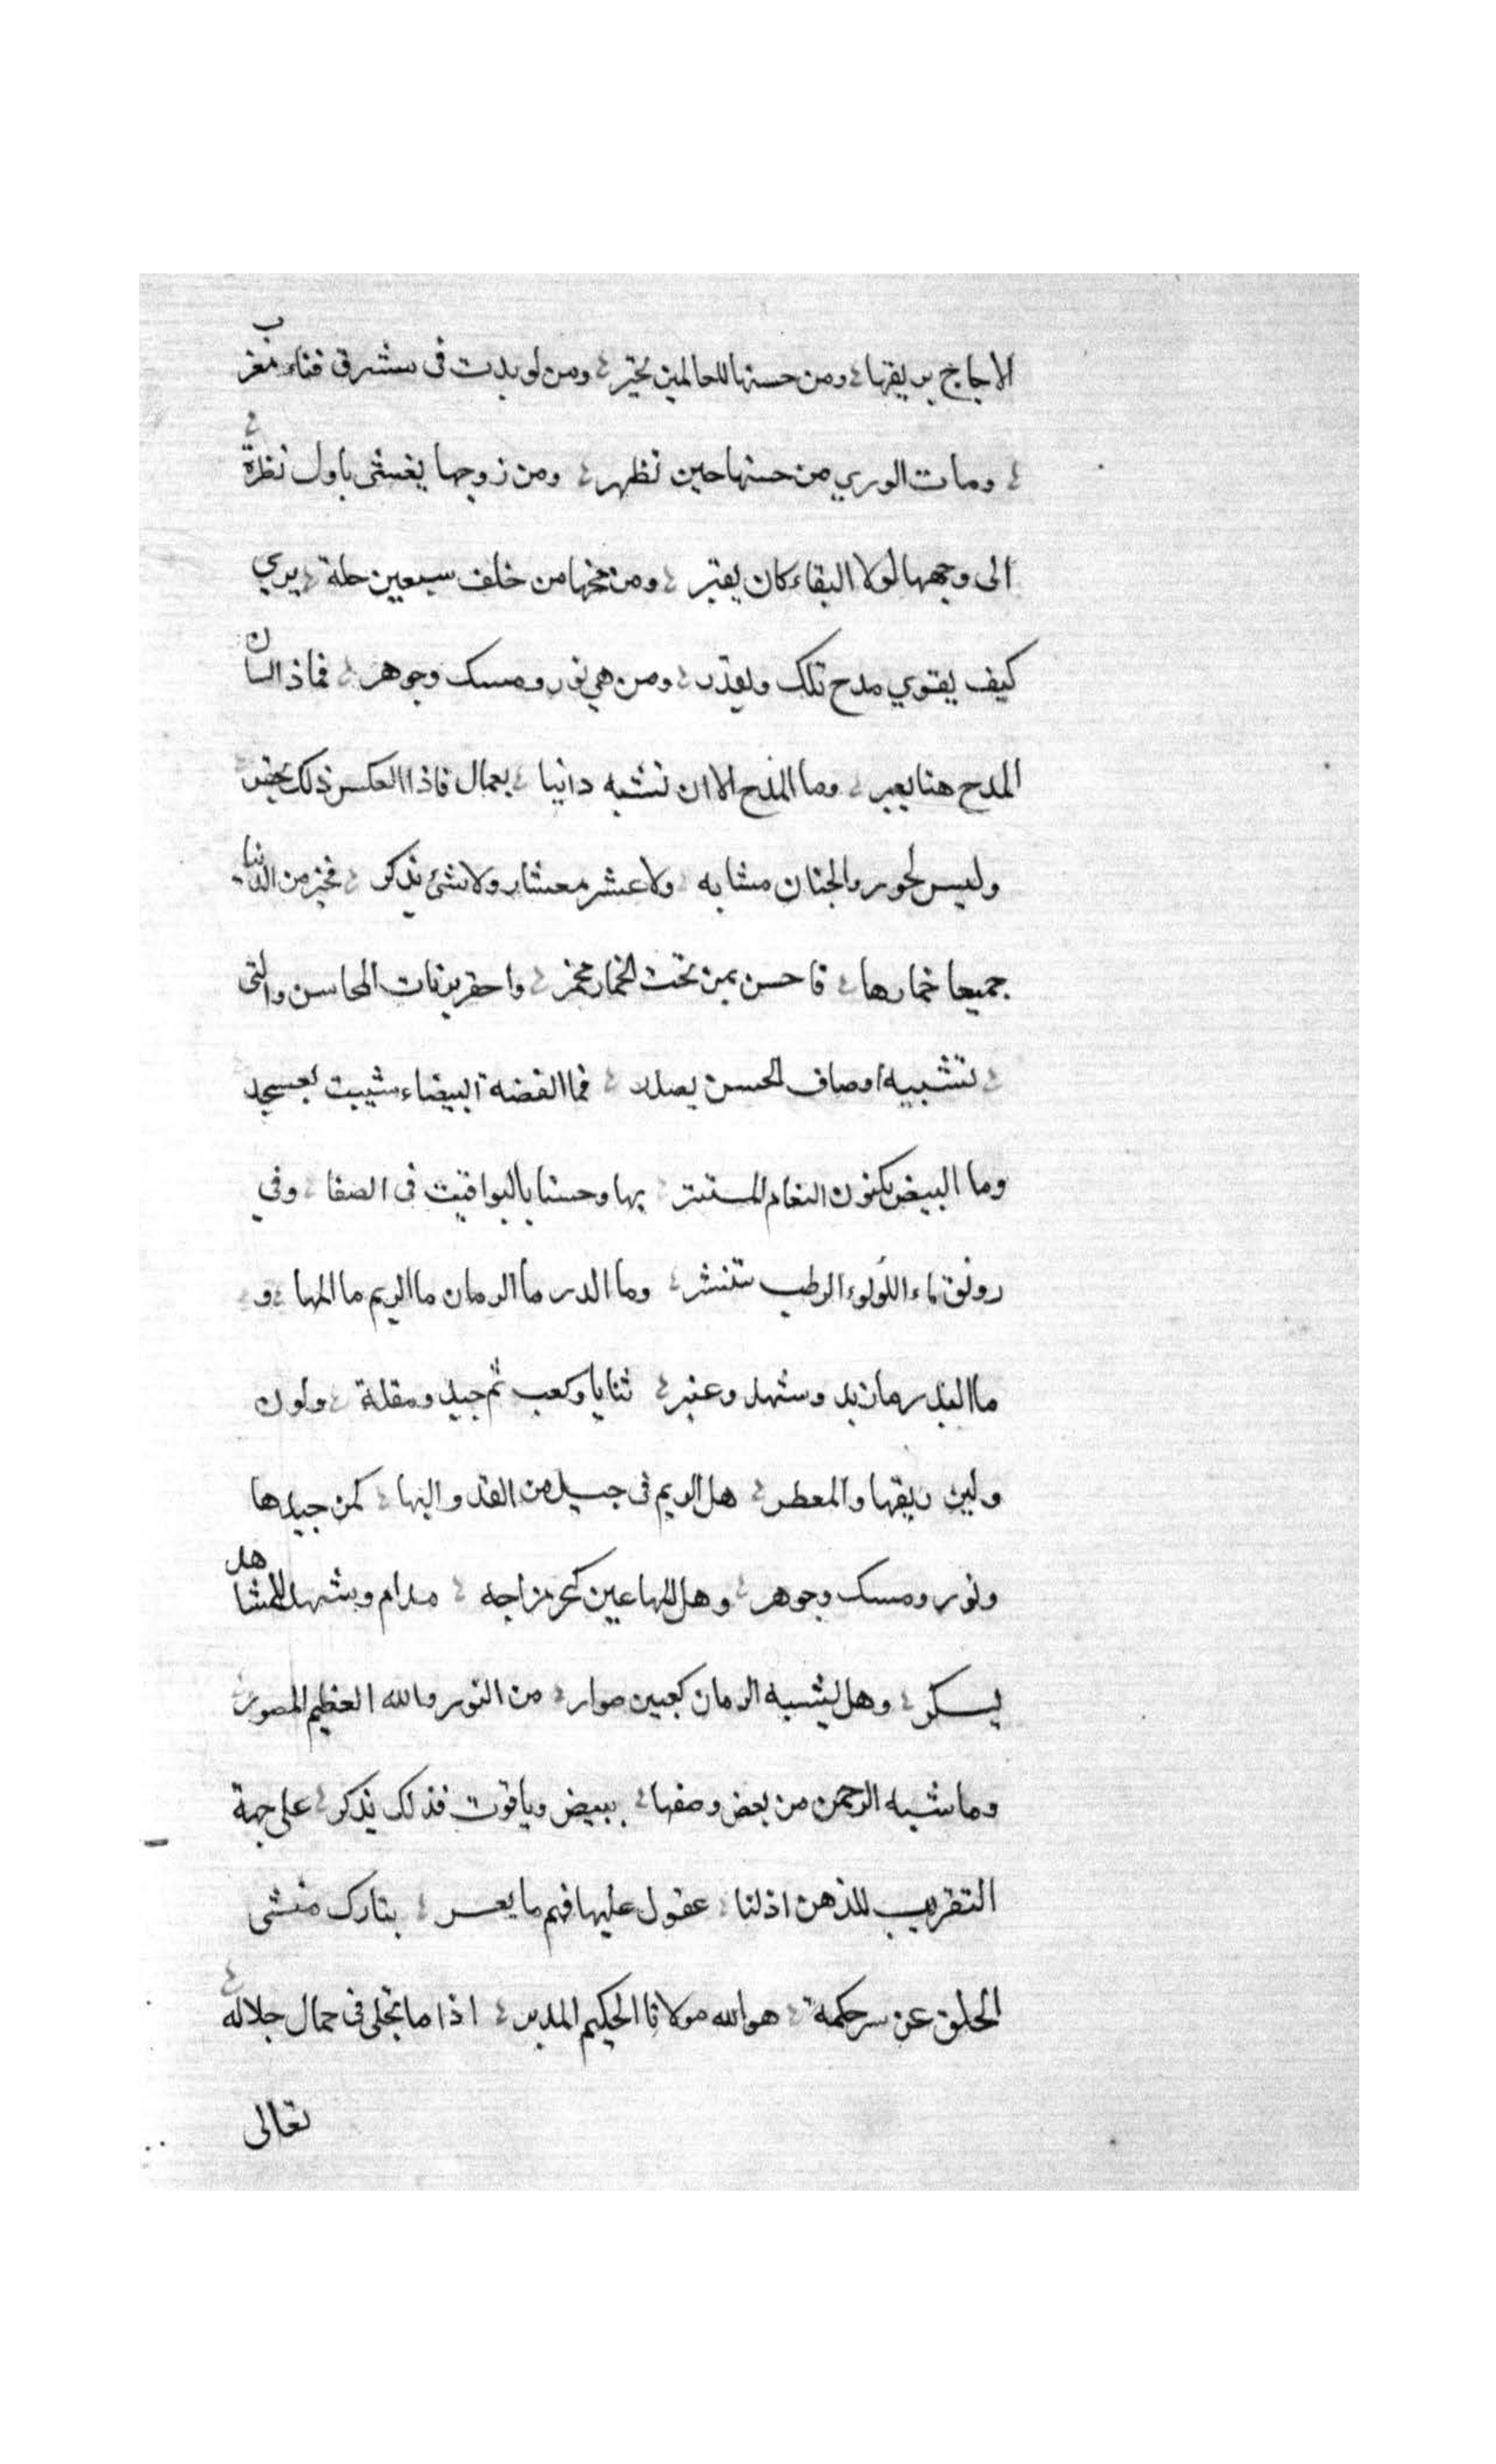 الاجاج بريقها ومن حسنها للعالمين تحير ومن لو بدت في مشرق ضاء مغرب
ومات الوري من حسنها حين تظهر ومن زوجها يغشى باول نظرة
الى وجهها لولا البقاء كان يقبر ومن مخها من خلف سبعين حلة يري
كيف يقوي مدح تلك ويقدر ومن هي نور ومسك وجوهر فماذا لسان
المدح هنا يعبر وما المدح الا ان تشبه دانيا بعال فاذا العكس ذلك
وليس لحور والجنان مشابه ولا عشر معشار ولا شئ يذكر فخير من الدنيا
جميعا خمارها فاحسن بمن تحت الخمار مخمر واحقر بربات المحاسن والتى
تشبيه اوصاف الحسن يصدر فما الفضة البيضاء شيبت بعسجد
وما البيض مكنون النعام المستتر بها وحسنا باليواقيت فى الصفا وفي
رونق ماء اللولوء الرطب تنشر وما الدر ما الرمان ما الريم ما المها و
ما البدر مان بد وشهد وعنبر ثنايا وكعب ثم جيد ومقلة ولون
ولين ريقها والمعطر هل الريم فى جيد من القد والبها كمن جيدها
ونور ومسك وجوهر وهل للمها عين كحر مزاجه مدام وشهد للمشاهد
يسكر وهل يشبه الرمان كعبين من النور والله العظيم المصور
وما شبه الرحمن من بعض وصفها ببيض وياقوت فذلك يذكر على جهة
التقريب للذهن اذ لنا عقول عليها فهم ما يعسر تبارك منشى
الخلق عن سر حكمة هو الله مولانا الحكيم المدبر اذا ما تجلى فى جمال جلاله
تعالى